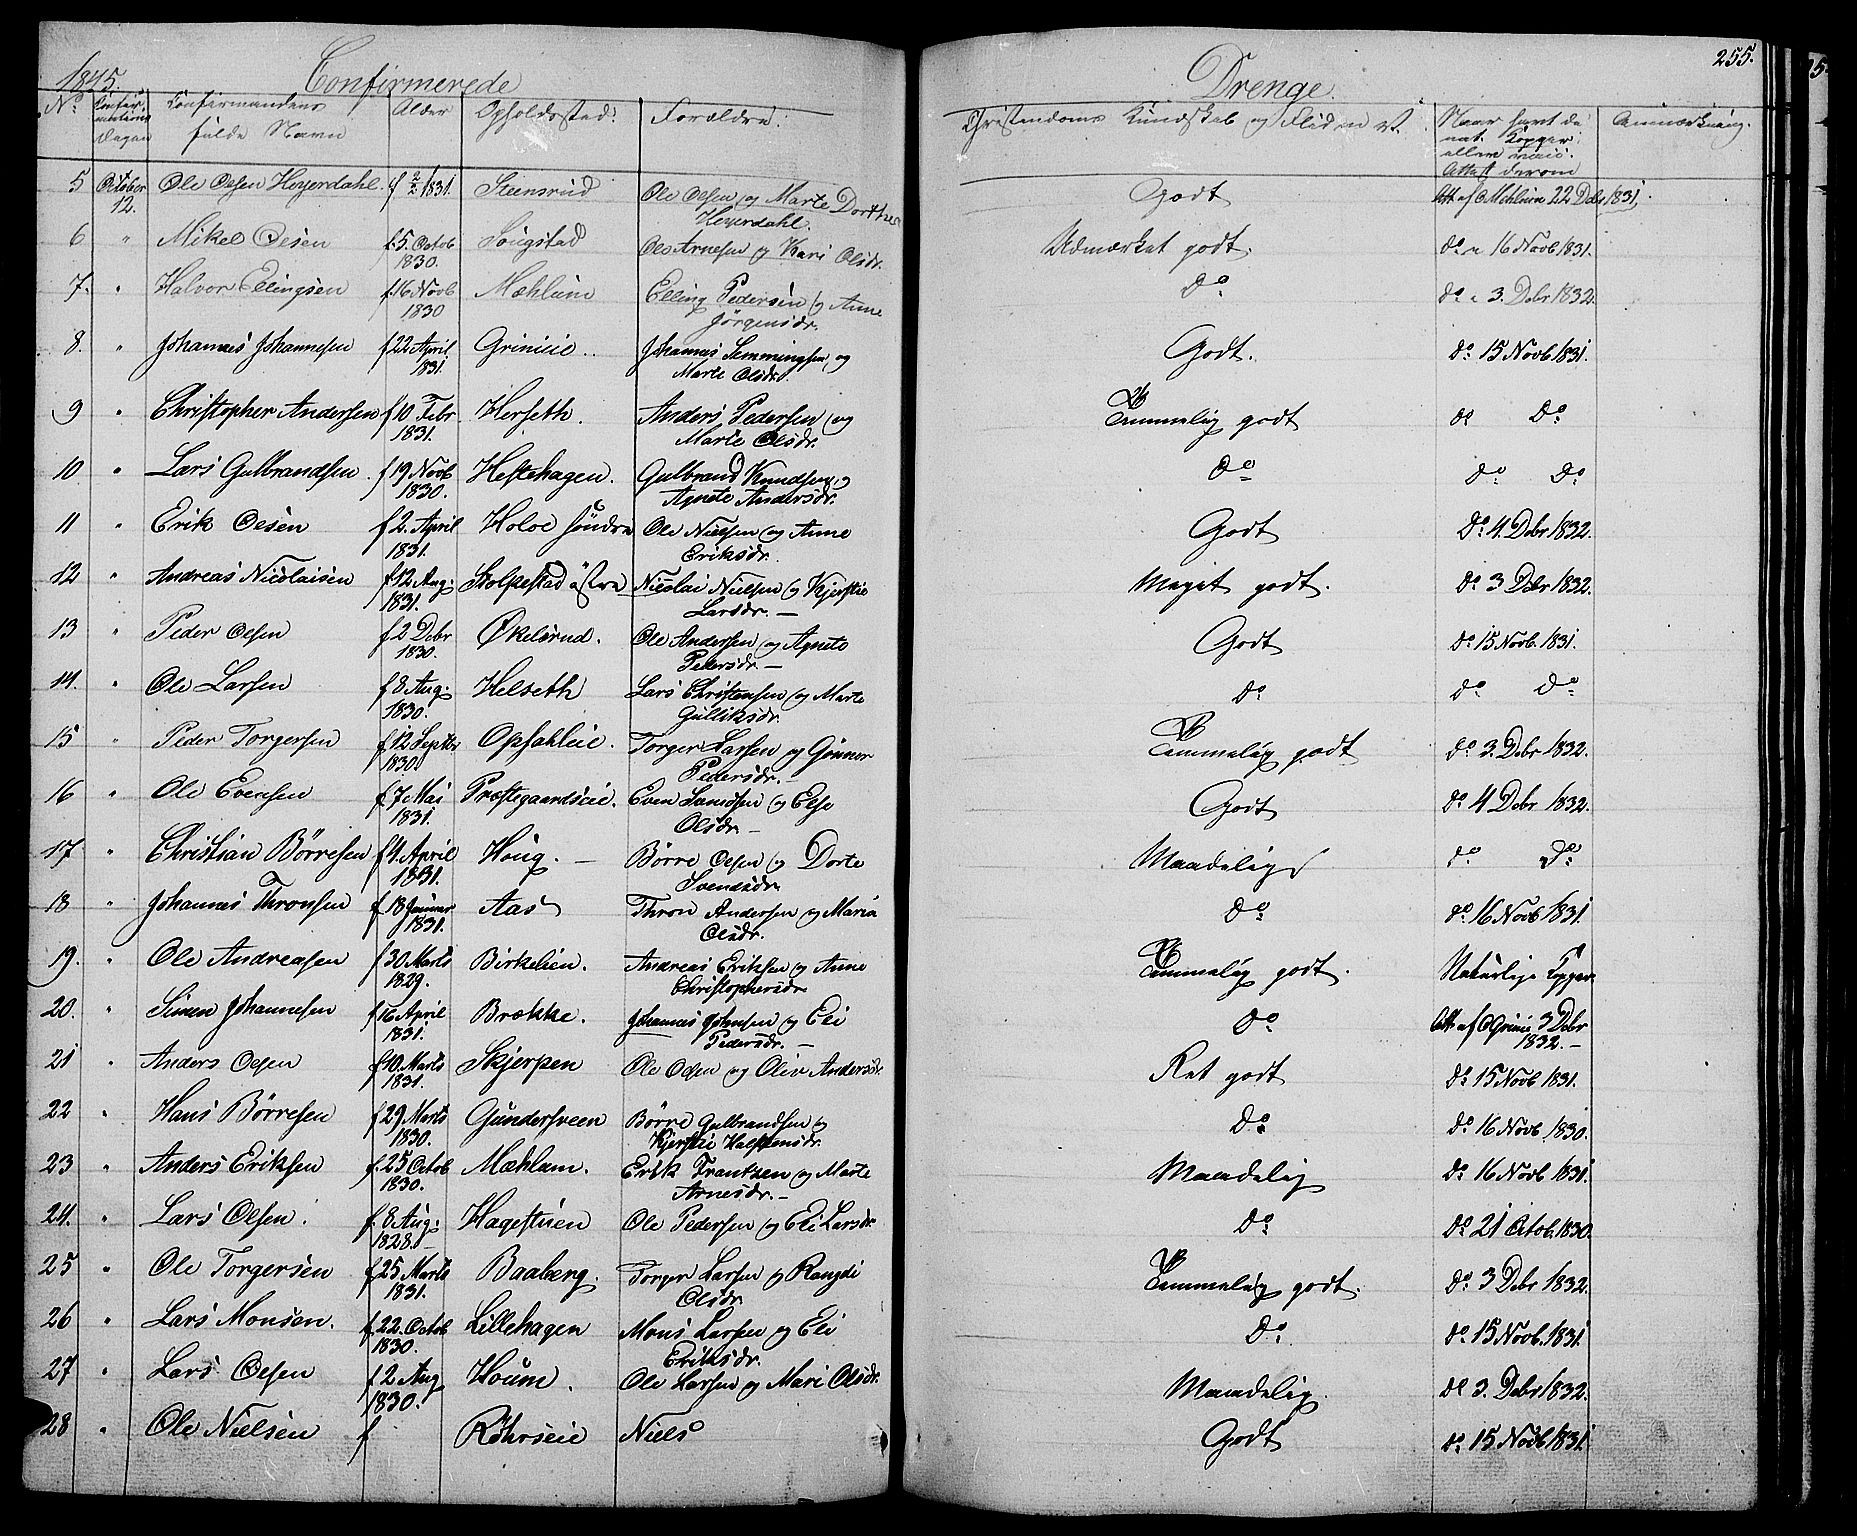 1845. Confirmerede Drenge. 255.
No Confirmations Dagen Confirmandens fulde Navn Alder Opholdssted. Forældre. Christendoms Kundskab og Flid m. v. Naar havt de nat. Kopper eller vacc. Attest derom Anmærkning.
5 October 12. Ole Olsen Heyerdahl. f 2/2 1831. Steensrud Ole Olsen og Marte Dorthea Heyerdahl. Godt Att. af O Mæhlum 22 Debr 1831.
6 " Mikel Olsen f. 5. Octob 1830. Sougstad Ole Arnesen og Kari Olsdr. Udmærket godt. do " 16 Novb 1831.
7. " Halvor Ellingsen f. 16 Novb 1830 Mæhlum Elling Pedersen og Anne Jörgensdr. Do do " 3. Debr 1832.
8. " Johannes Johannesen f 22 April 1831. Griniie. Johannes Semmingsen og Marte Olsdr. Godt. do 15 Novb. 1831.
9 " Christopher Andersen f 10 Febr 1831. Herseth. Anders Pedersen og Marte Olsdr. Temmelig godt do Do
10. " Lars Gulbrandsen. f 19 Novb 1830. Heftehagen. Gulbrand Knudsen og Agnete Andersdr. Do do Do
11 " Erik Olsen f 2. April 1831. Holoe söndre Ole Nielsen og Anne Eriksdr. Godt Do 4. Debr 1832.
12 " Andreas Nicolaisen f 12 Aug: 1831. Stolpestad östre Nicolai Nielsen og Kjerstie Larsdr. — Meget godt. do 3 Debr 1832.
13 " Peder Olsen f 2 Debr 1830. Økelsrud. Ole Andersen og Agnete Pedersdr. — Godt do 15 Novb. 1831.
14. " Ole Larsen f 8 Aug: 1830. Helseth Lars Christensen og Marte Gulliksdr. Do do Do
15 " Peder Torgersen f 12 Septbr 1830. Opsahleie. Torger Larsen og Gunnor Pedersdr. — Temmelig godt do 3. Debr 1832.
16 " Ole Evensen f 7 Mai 1831. Præstegaardseie. Even Larsen og Else Olsdr. — Godt do 4 Debr 1832.
17. " Christian Börresen f 4. April 1831. Houg. — Börre Olsen og Dorte Svendsdr. Maadelig do Do
18 " Johannes Thronsen f 18 Januar 1831. Aas Thron Andersen og Maria Olsdr. Do do 16 Novb 1831.
19. " Ole Andreasen f 30 Marts 1829. Birkelien. Andreas Eriksen og Anne Christophersdr. Temmelig godt. Naturlige Kopper.
20. " Simen Johannesen f 16 April 1831. Brække. Johannes Johnsen og Eli Pedersdr. — Do Att. af O Grinie 3 Debr 1832. —
21 " Anders Olsen f 10. Marts 1831. Skjerpen Ole Olsen og Oliv Andersdr. Ret godt do 15 Novb 1831.
22 " Hans Börresen f 29 Marts 1830. Gundersveen Börre Gulbrandsen og Kjerstie Halstensdr. Do do 16 Novb 1830.
23 " Anders Eriksen f. 25 Octob 1830. Mæhlum. Erik Frantzen og Marte Arnesdr. — Maadelig do 16 Novb 1831.
24. " Lars Olsen. f. 8 Aug: 1828. Hagestuen Ole Pedersen og Eli Larsdr. Do do 21 Octob. 1830.
25 " Ole Torgersen f 25 Marts 1831. Baaberg. Torger Larsen og Rangdi Olsdr. Temmelig godt. do 3 Debr 1832.
26 " Lars Monsen. f. 22. Octob 1830. Lillehagen Mons Larsen og Eli Eriksdr. Do. do 15 Novb. 1831.
27 " Lars Olsen f 2 Aug 1830. Houm. Ole Larsen og Mari Olsdr. Maadelig. do 3. Debr 1832.
28 " Ole Nielsen f Röhrseie Niels Godt do 15 Novb 1831.